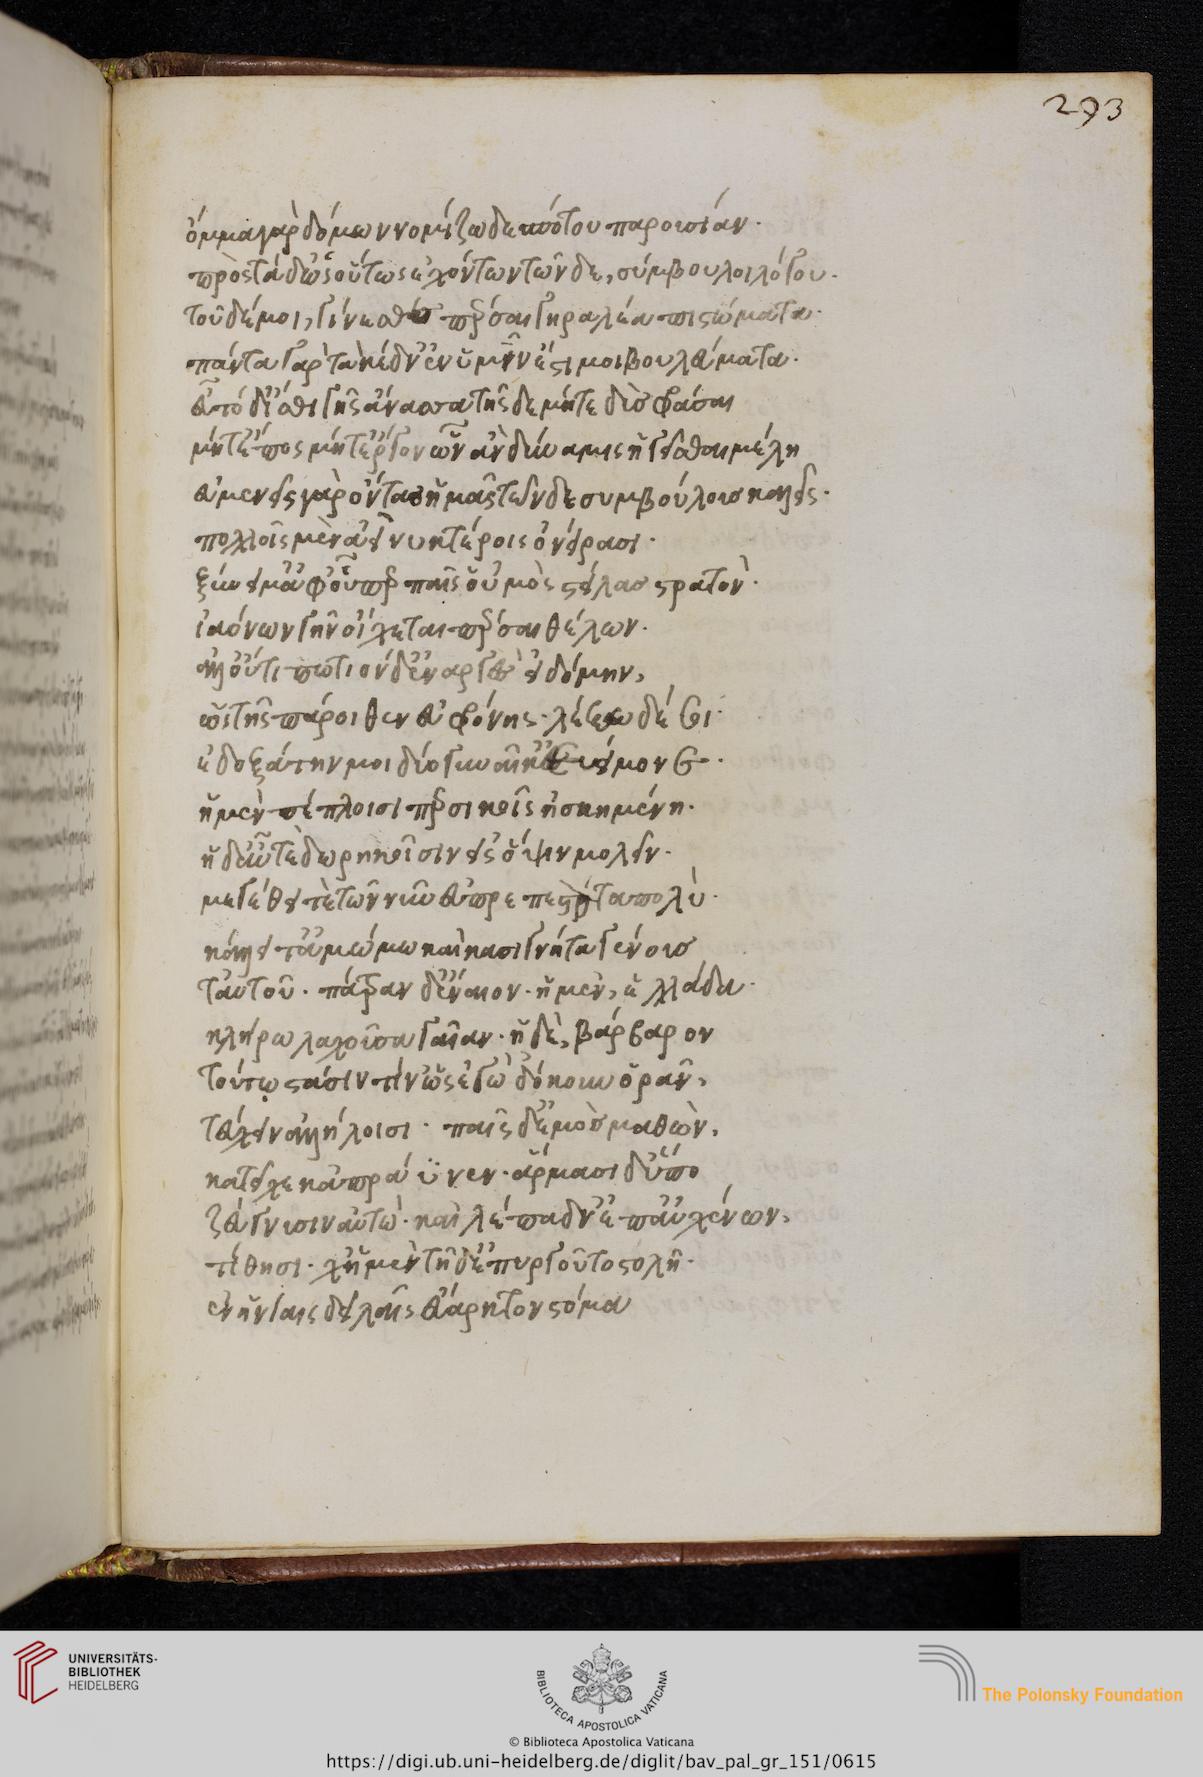 293
ὄμμα γὰρ δόμων νομίζω δεσπότου παρουσίαν·
πρὸς τάδ' ὡς οὕτως ἐχόντων τῶνδε, σύμβουλοι λόγου·
τοῦδέ μοι, γένεσθε πέρσαι γηραλέα πιστώματα·
πάντα γὰρ τὰ κέδν' ἐν ὑμῖν ἐστί μοι βουλεύματα·
εὖ τόδ' ἴσθι γῆς ἄνασσα τῆσδε μή τε δὶς φράσαι
μήτ' ἔπος μήτ' ἔργον ὧν ἂν δύναμις ἡγεῖσθαι μέλη
εὐμενεῖς γὰρ ὄντας ἡμᾶς τῶνδε συμβούλους καλεῖς·
πολλοῖς μὲν ἀεὶ νυκτέροις ὀνείρασι·
ξύνειμ' ἀφ' οὗπερ παῖς ὁ ἐμὸς στείλας στρατὸν·
ἰαόνων γῆν οἴχεται πέρσαι θέλων·
ἀλλ' οὔτι πω τιόνδ' ἐναργὲς εἰδόμην,
ὡς τῆς πάροιθεν εὐφρόνης· λέξω δέ σοι·
ἐδοξάτην μοι δύο γυναῖκ' εὐείμονε·
ἡ μὲν πέπλοισι περσικοῖς ἠσκημένη·
ἡ δ' αὖτε δωρικοῖσιν εἰς ὄψιν μολεῖν·
μεγέθει τε τῶν νῦν εὐπρεπεστάτα πολὺ·
κάλλει τ' ἀμώμω καὶ κασιγνήτα γένους
ταὐτοῦ· πάτραν δ' ἔναιον· ἡ μὲν, ἑλλάδα·
κλήρω λαχοῦσα γαῖαν· ἡ δὲ, βάρβαρον
τούτω στάσιν τίν' ὡς ἐγὼ 'δόκουν ὁρᾶν,
τεύχειν ἀλλήλοισι· παῖς δ' ἐμὸς μαθὼν,
κατεῖχε κἀπράϋνεν· ἅρμασι δ' ὕπο
ζεύγνυσιν αὐτὼ· καὶ λέπαδν' ἐπ' αὐχένων,
τίθησι· χ' ἡ μὲν τῆδ' ἐπυργοῦτο στολῆ·
ἐν ἡνίαις δ' εἶχεν εὔαρκτον στόμα
UNIVERSITÄTS-
BIBLIOTHEK
HEIDELBERG
BIBLIOTECA APOSTOLICA VATICANA
© Biblioteca Apostolica Vaticana
The Polonsky Foundation
https://digi.ub.uni-heidelberg.de/diglit/bav_pal_gr_151/0615